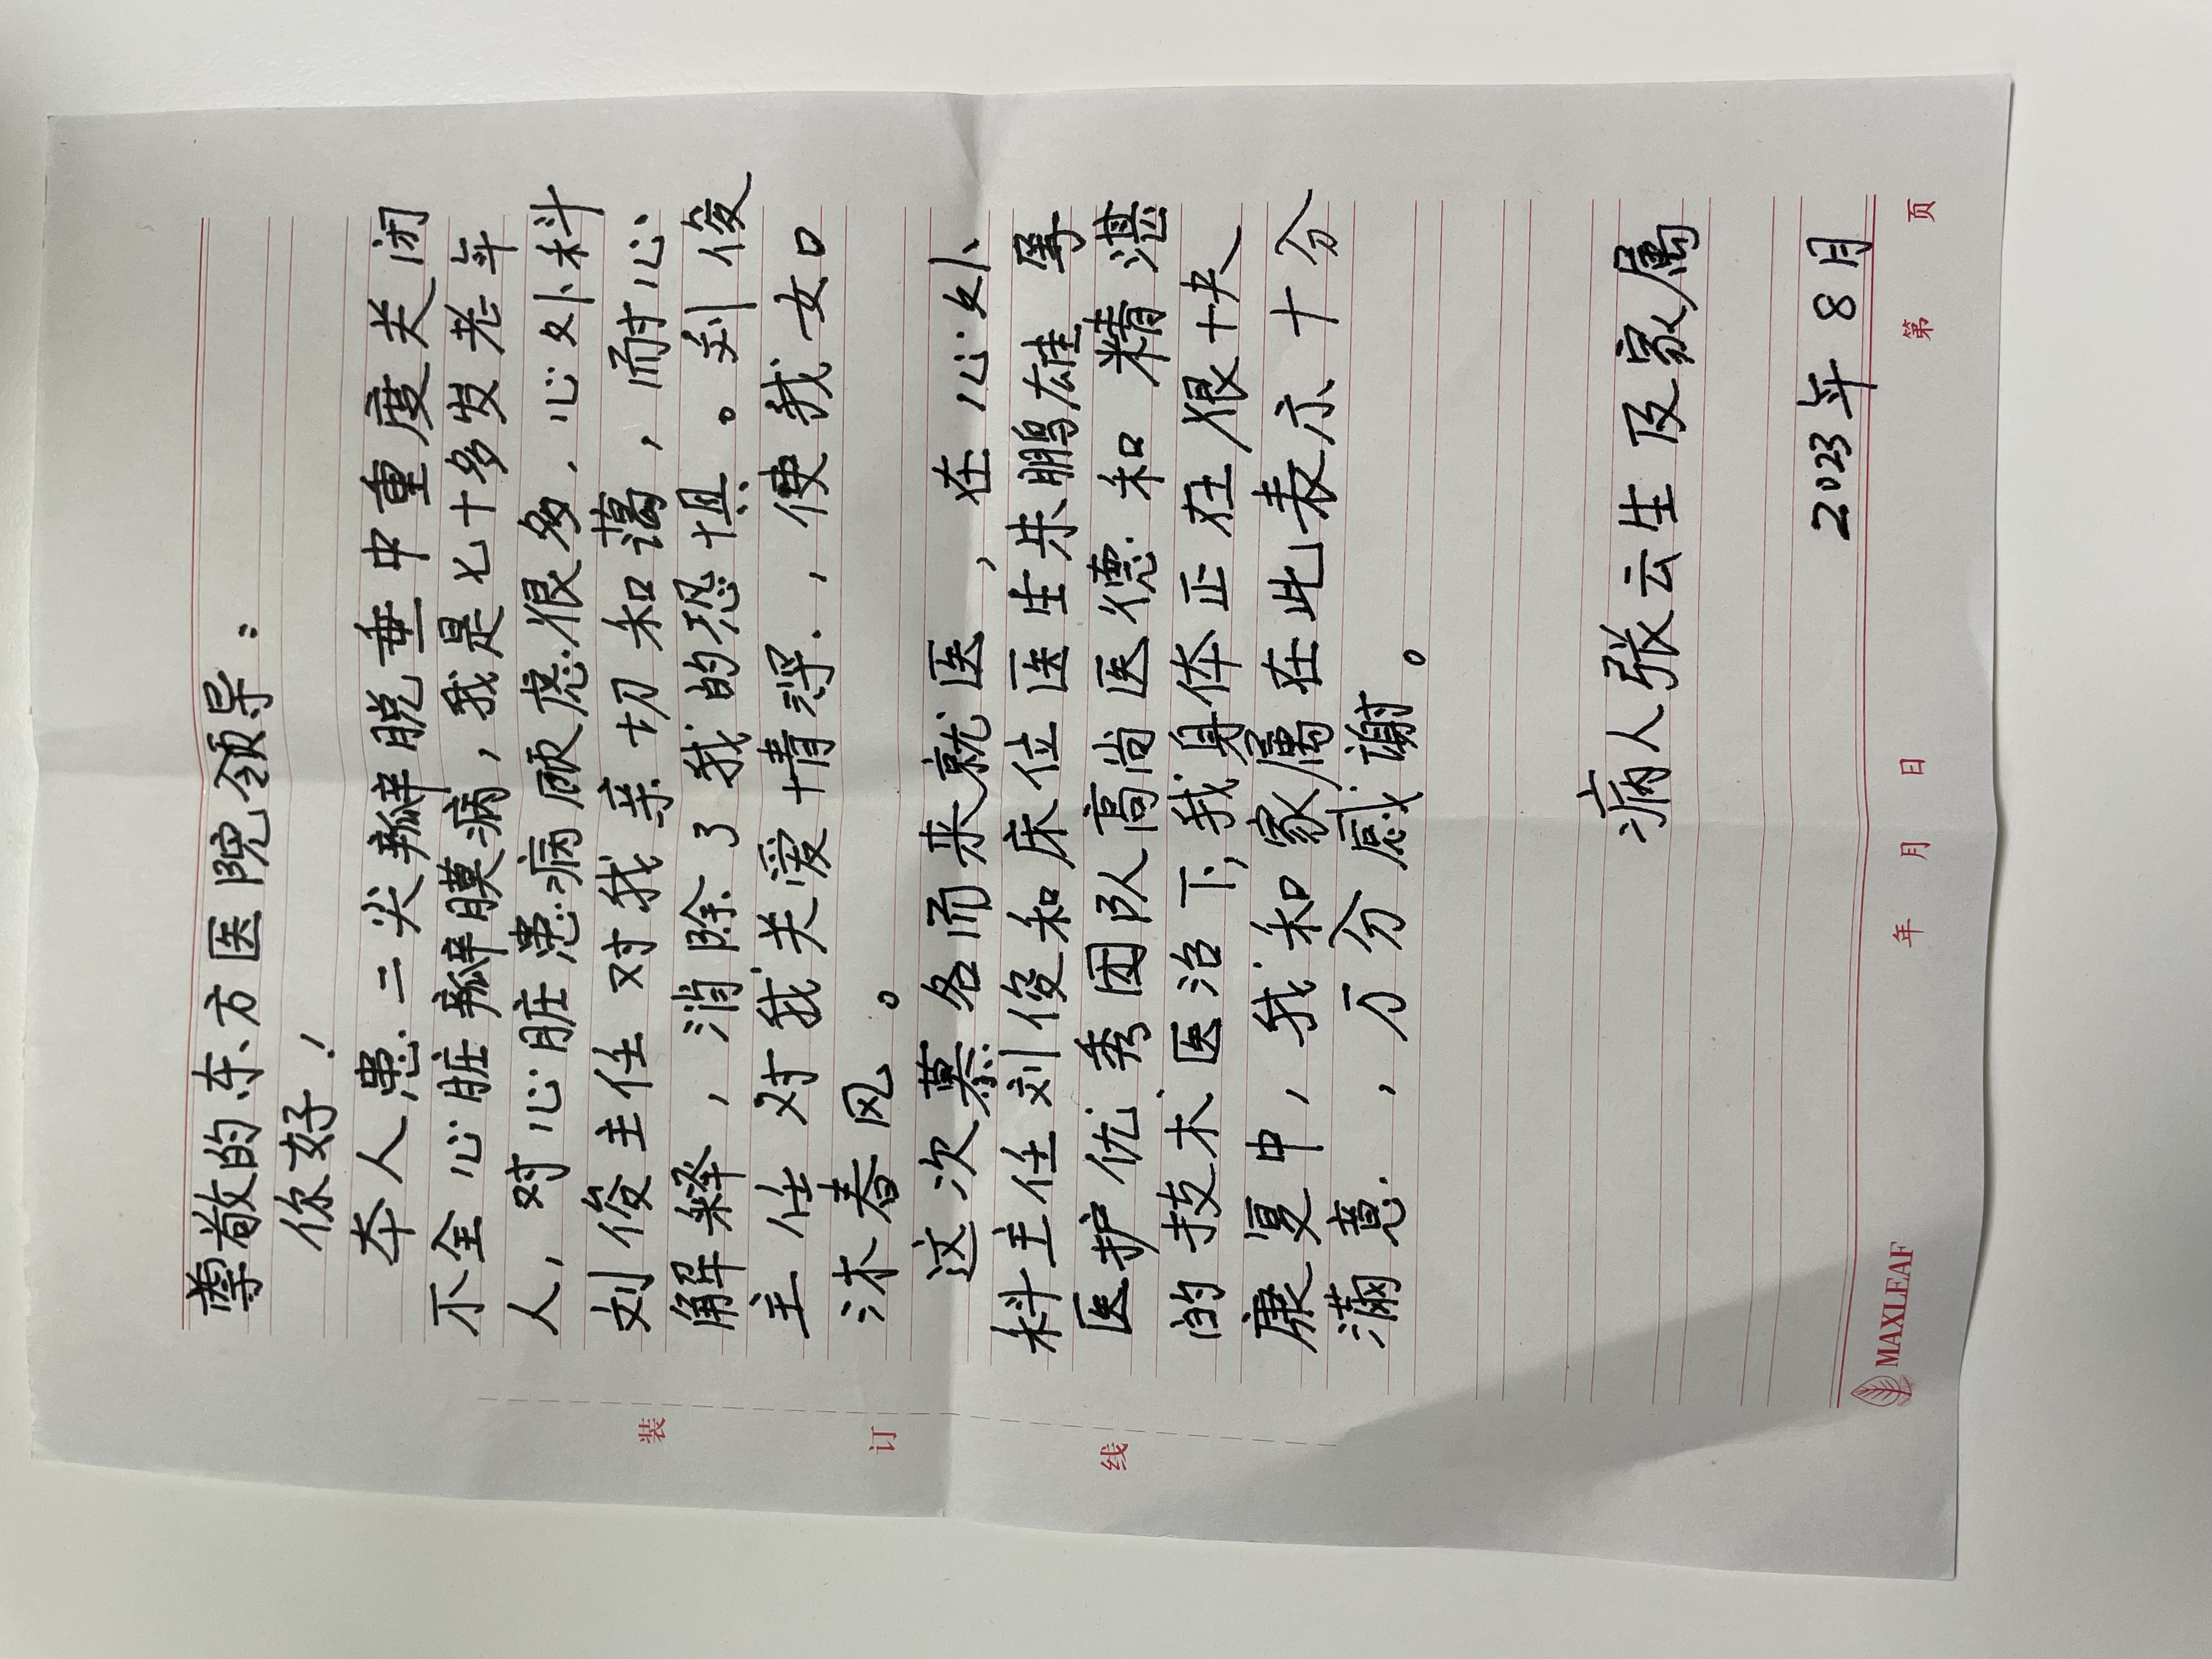 尊敬的东方医院领导：
你好！
本人患二尖瓣脱垂中重度关闭
不全心脏瓣膜病，我是七十多岁老年
人，对心脏患病顾虑很多，心外科
刘俊主任对我亲切和蔼，耐心
解释，消除了我的恐惧。刘俊
主任对我关爱情深，使我如
沐春风。
这次慕名而来就医，在心外
科主任刘俊和床位医生朱鹏雄等
医护优秀团队高尚医德和精湛
的技术医治下，我身体正在很快
康复中，我和家属在此表示十分
满意，万分感谢。
病人张云生及家属
2023年8月
装
订
线
MAXLEAF
年 月 日
第 页